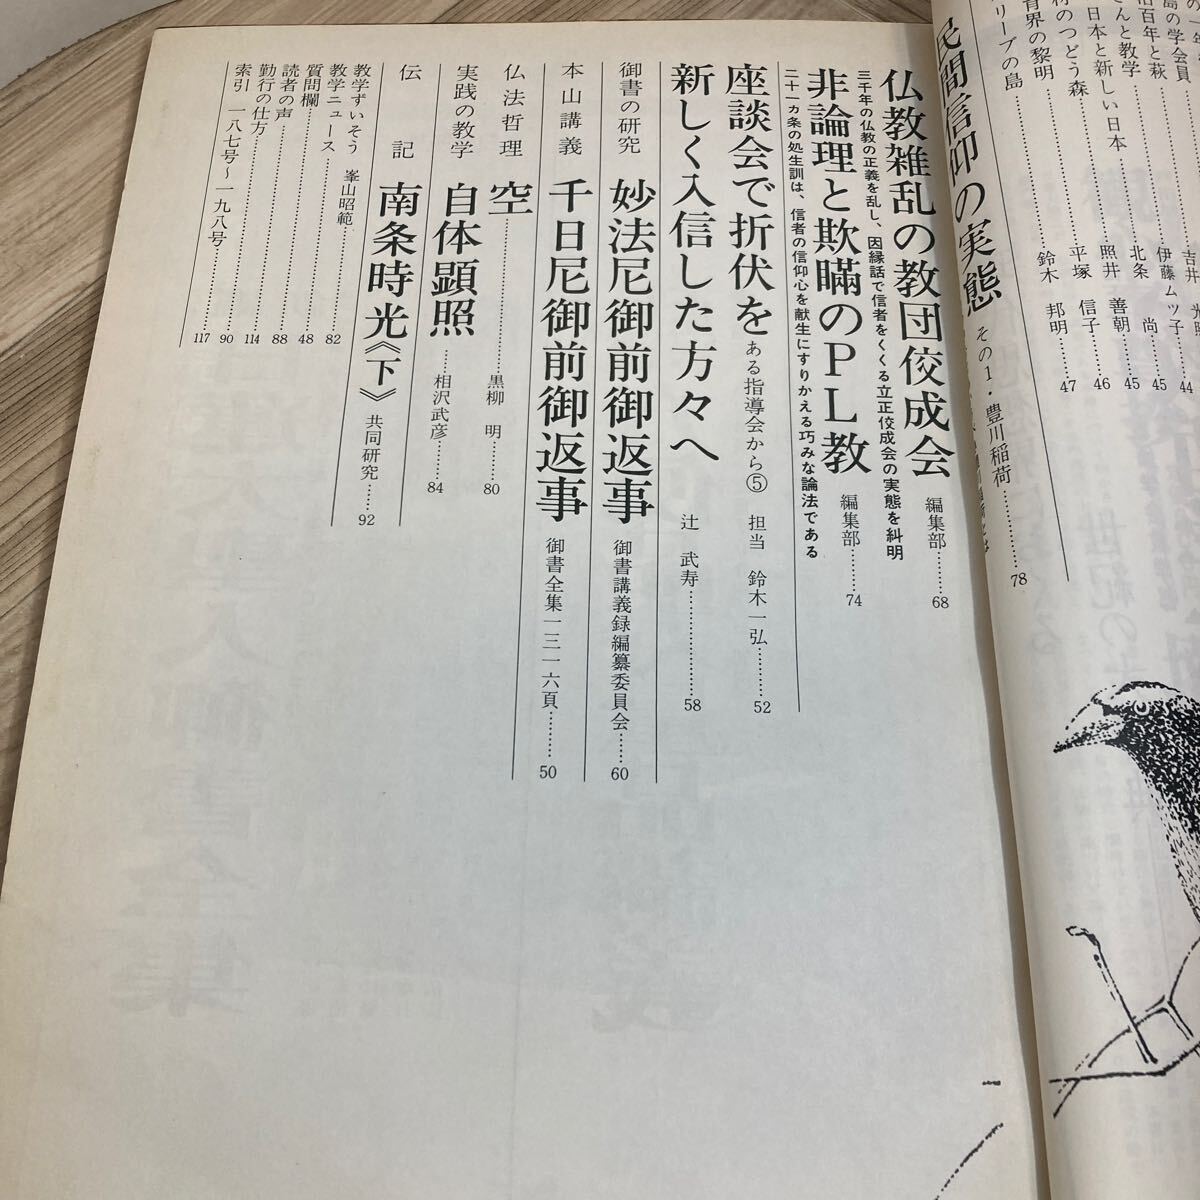 育界の黎明
リーブの島
鈴木 邦明 47
平塚 信子 46
照井 善朝 45
北条 尚 45
伊藤ムツ子
44
日本と新しい日本
さんと教学
百年と萩
島の学会員
のつどう森
民間信仰の実態 その1・豊川稲荷 78
仏教雑乱の教団佼成会 編集部 68
三千年の仏教の正義を乱し、因縁話で信者をくくる立正佼成会の実態を糾明
非論理と欺瞞のPL教 編集部 74
二十一ヵ条の処生訓は、信者の信仰心を献生にすりかえる巧みな論法である
座談会で折伏を ある指導会から⑤ 担当 鈴木一弘 52
新しく入信した方々へ 辻 武寿 58
御書の研究 妙法尼御前御返事 御書講義録編纂委員会 60
本山講義 千日尼御前御返事 御書全集一三一六頁 50
仏法哲理 空 黒柳 明 80
実践の教学 自体顕照 相沢武彦 84
伝記 南条時光《下》 共同研究 92
教学ずいそう 峯山昭範 82
教学ニュース 48
質問欄 88
読者の声 114
勤行の仕方 90
索引 一八七号〜一九八号 117